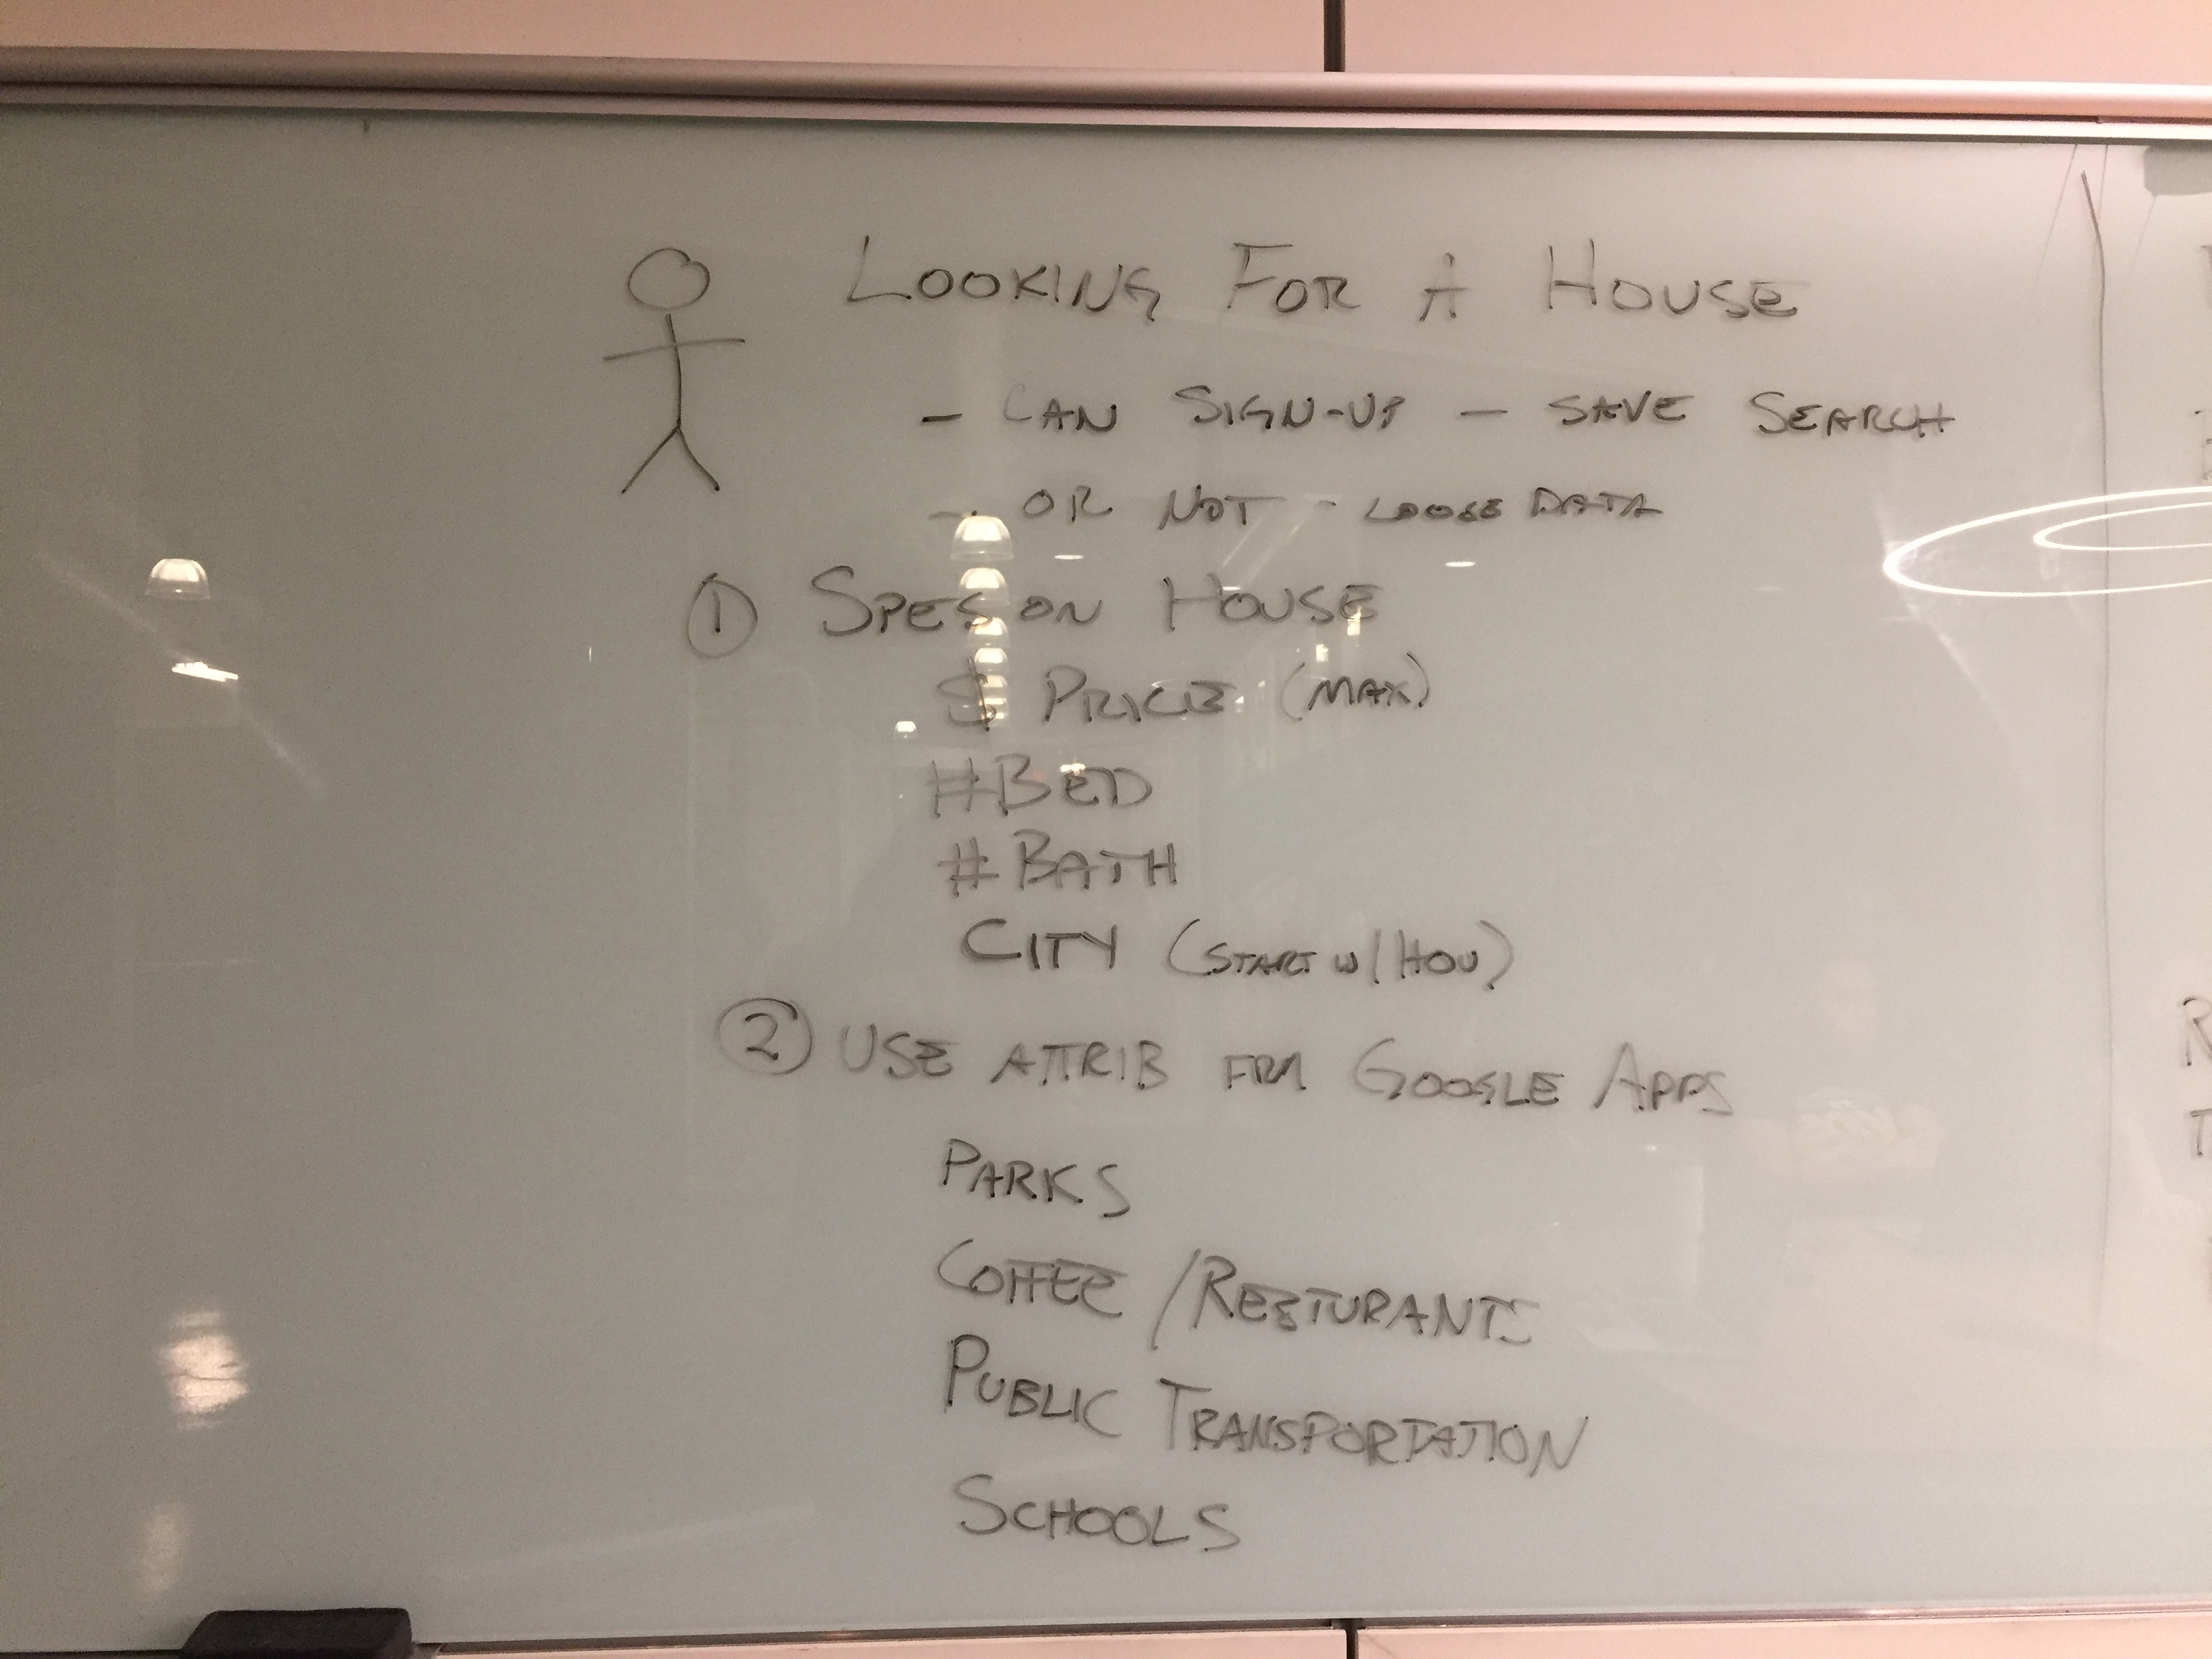 LOOKING FOR A HOUSE
- CAN SIGN-UP - SAVE SEARCH
- OR NOT - LOOSE DATA
① SPES ON HOUSE
$ PRICE (MAX)
#BED
#BATH
CITY (START W/ HOU)
② USE ATTRIB FRM GOOGLE APPS
PARKS
COFFEE / RESTURANTS
PUBLIC TRANSPORTATION
SCHOOLS